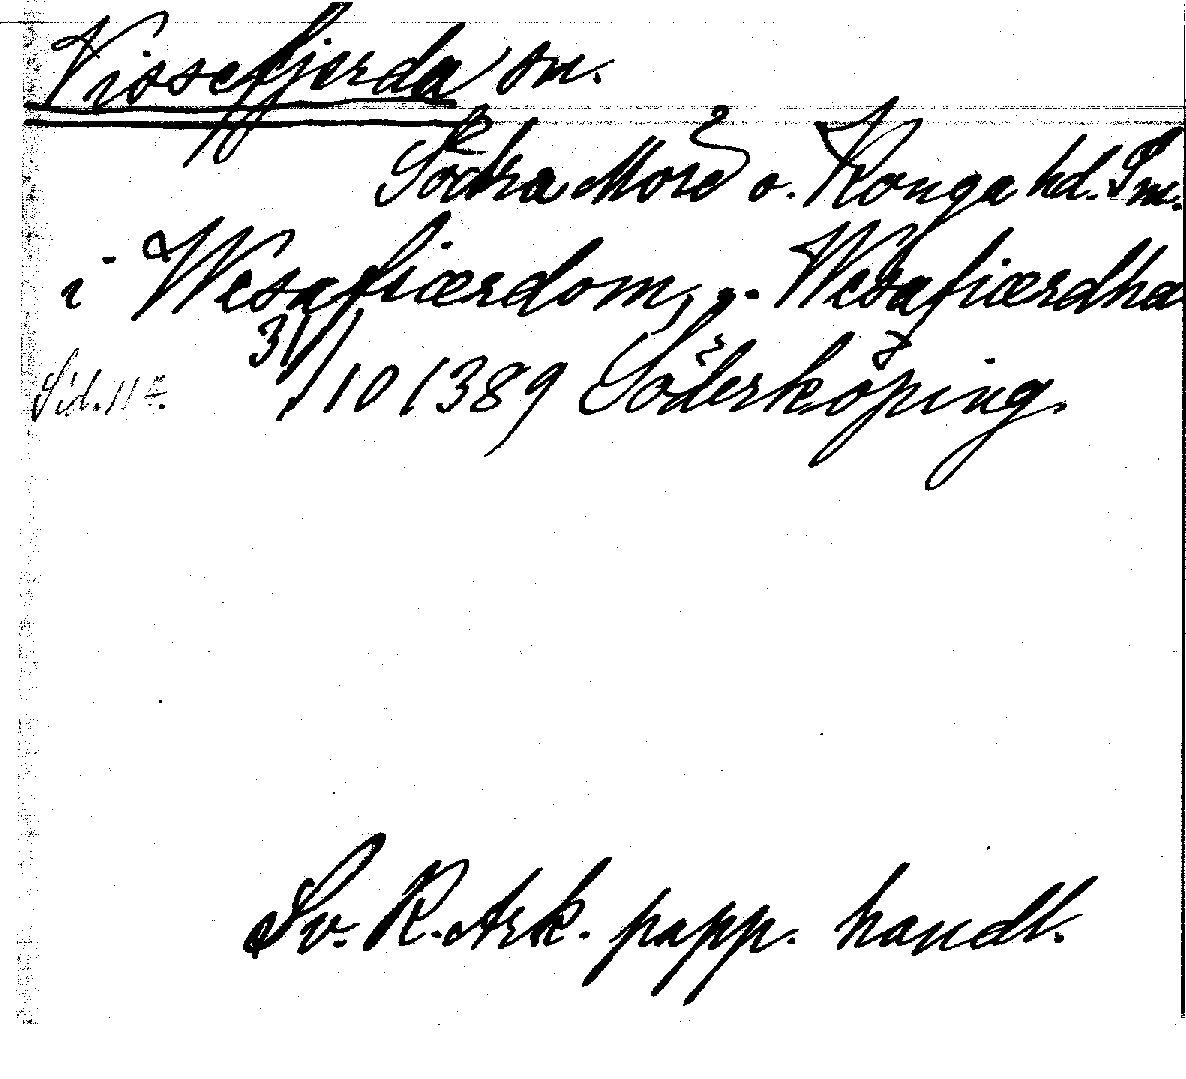 Vissefjerda sn.
Södra Möre o. Konga hd. Sm.
i Wesafiærdom, .,.- Wesafiærdha
Sid. 117. 31/10 1389 Söderköping.
Sv. R. Ark. papp. handl.